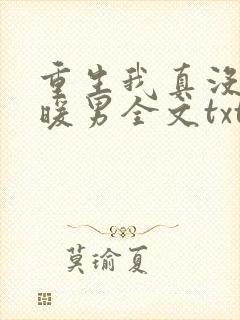 重生我真没
暖男全文txt
莫瑜夏